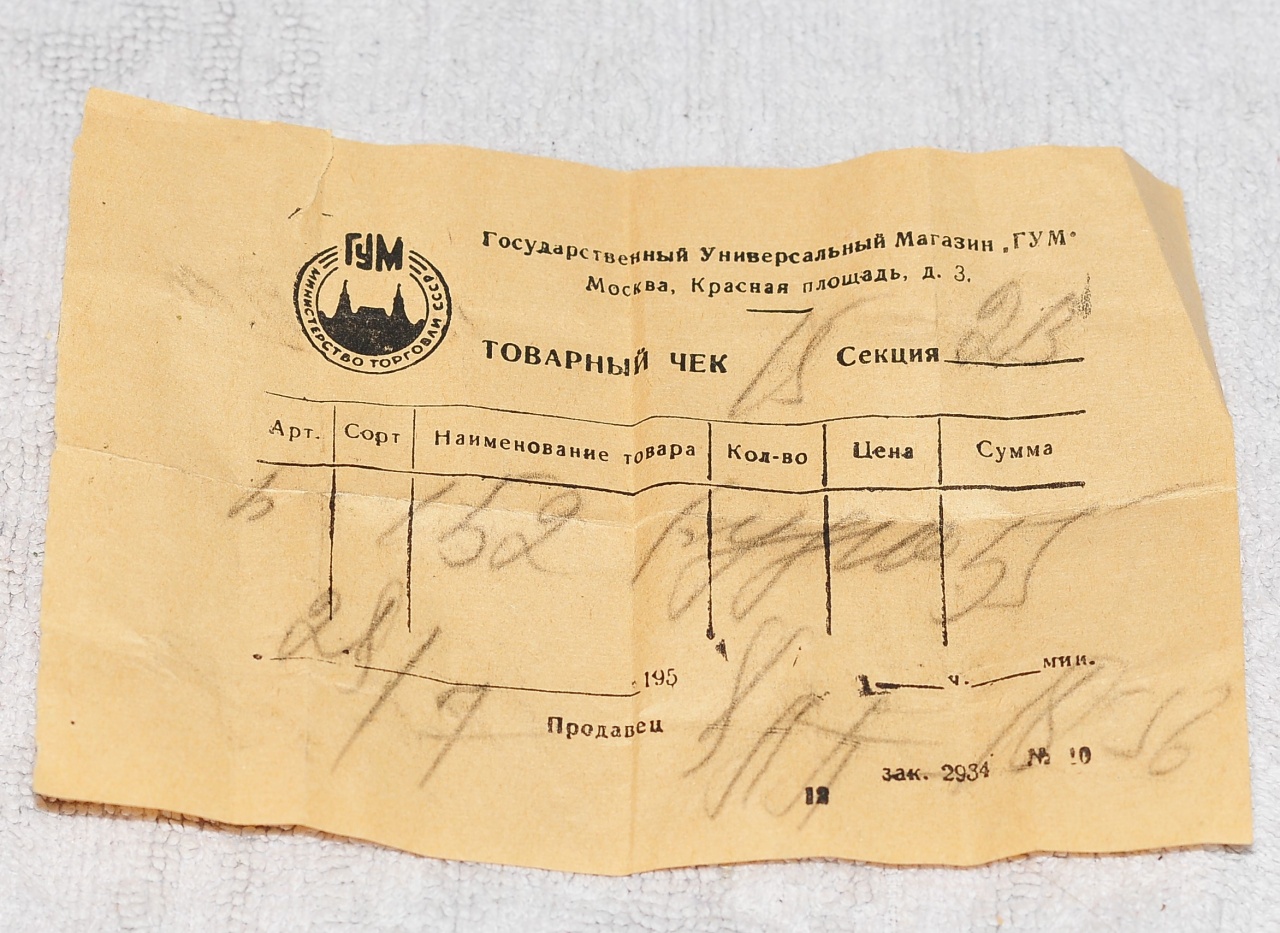 ГУМ
МИНИСТЕРСТВО ТОРГОВЛИ СССР
Государственный Универсальный Магазин „ГУМ"
Москва, Красная площадь, д. 3.
ТОВАРНЫЙ ЧЕК Секция
Арт. Сорт Наименование товара Кол-во Цена Сумма
152
28/7 195 ч. мин.
Продавец
зак. 2934 № 10
12